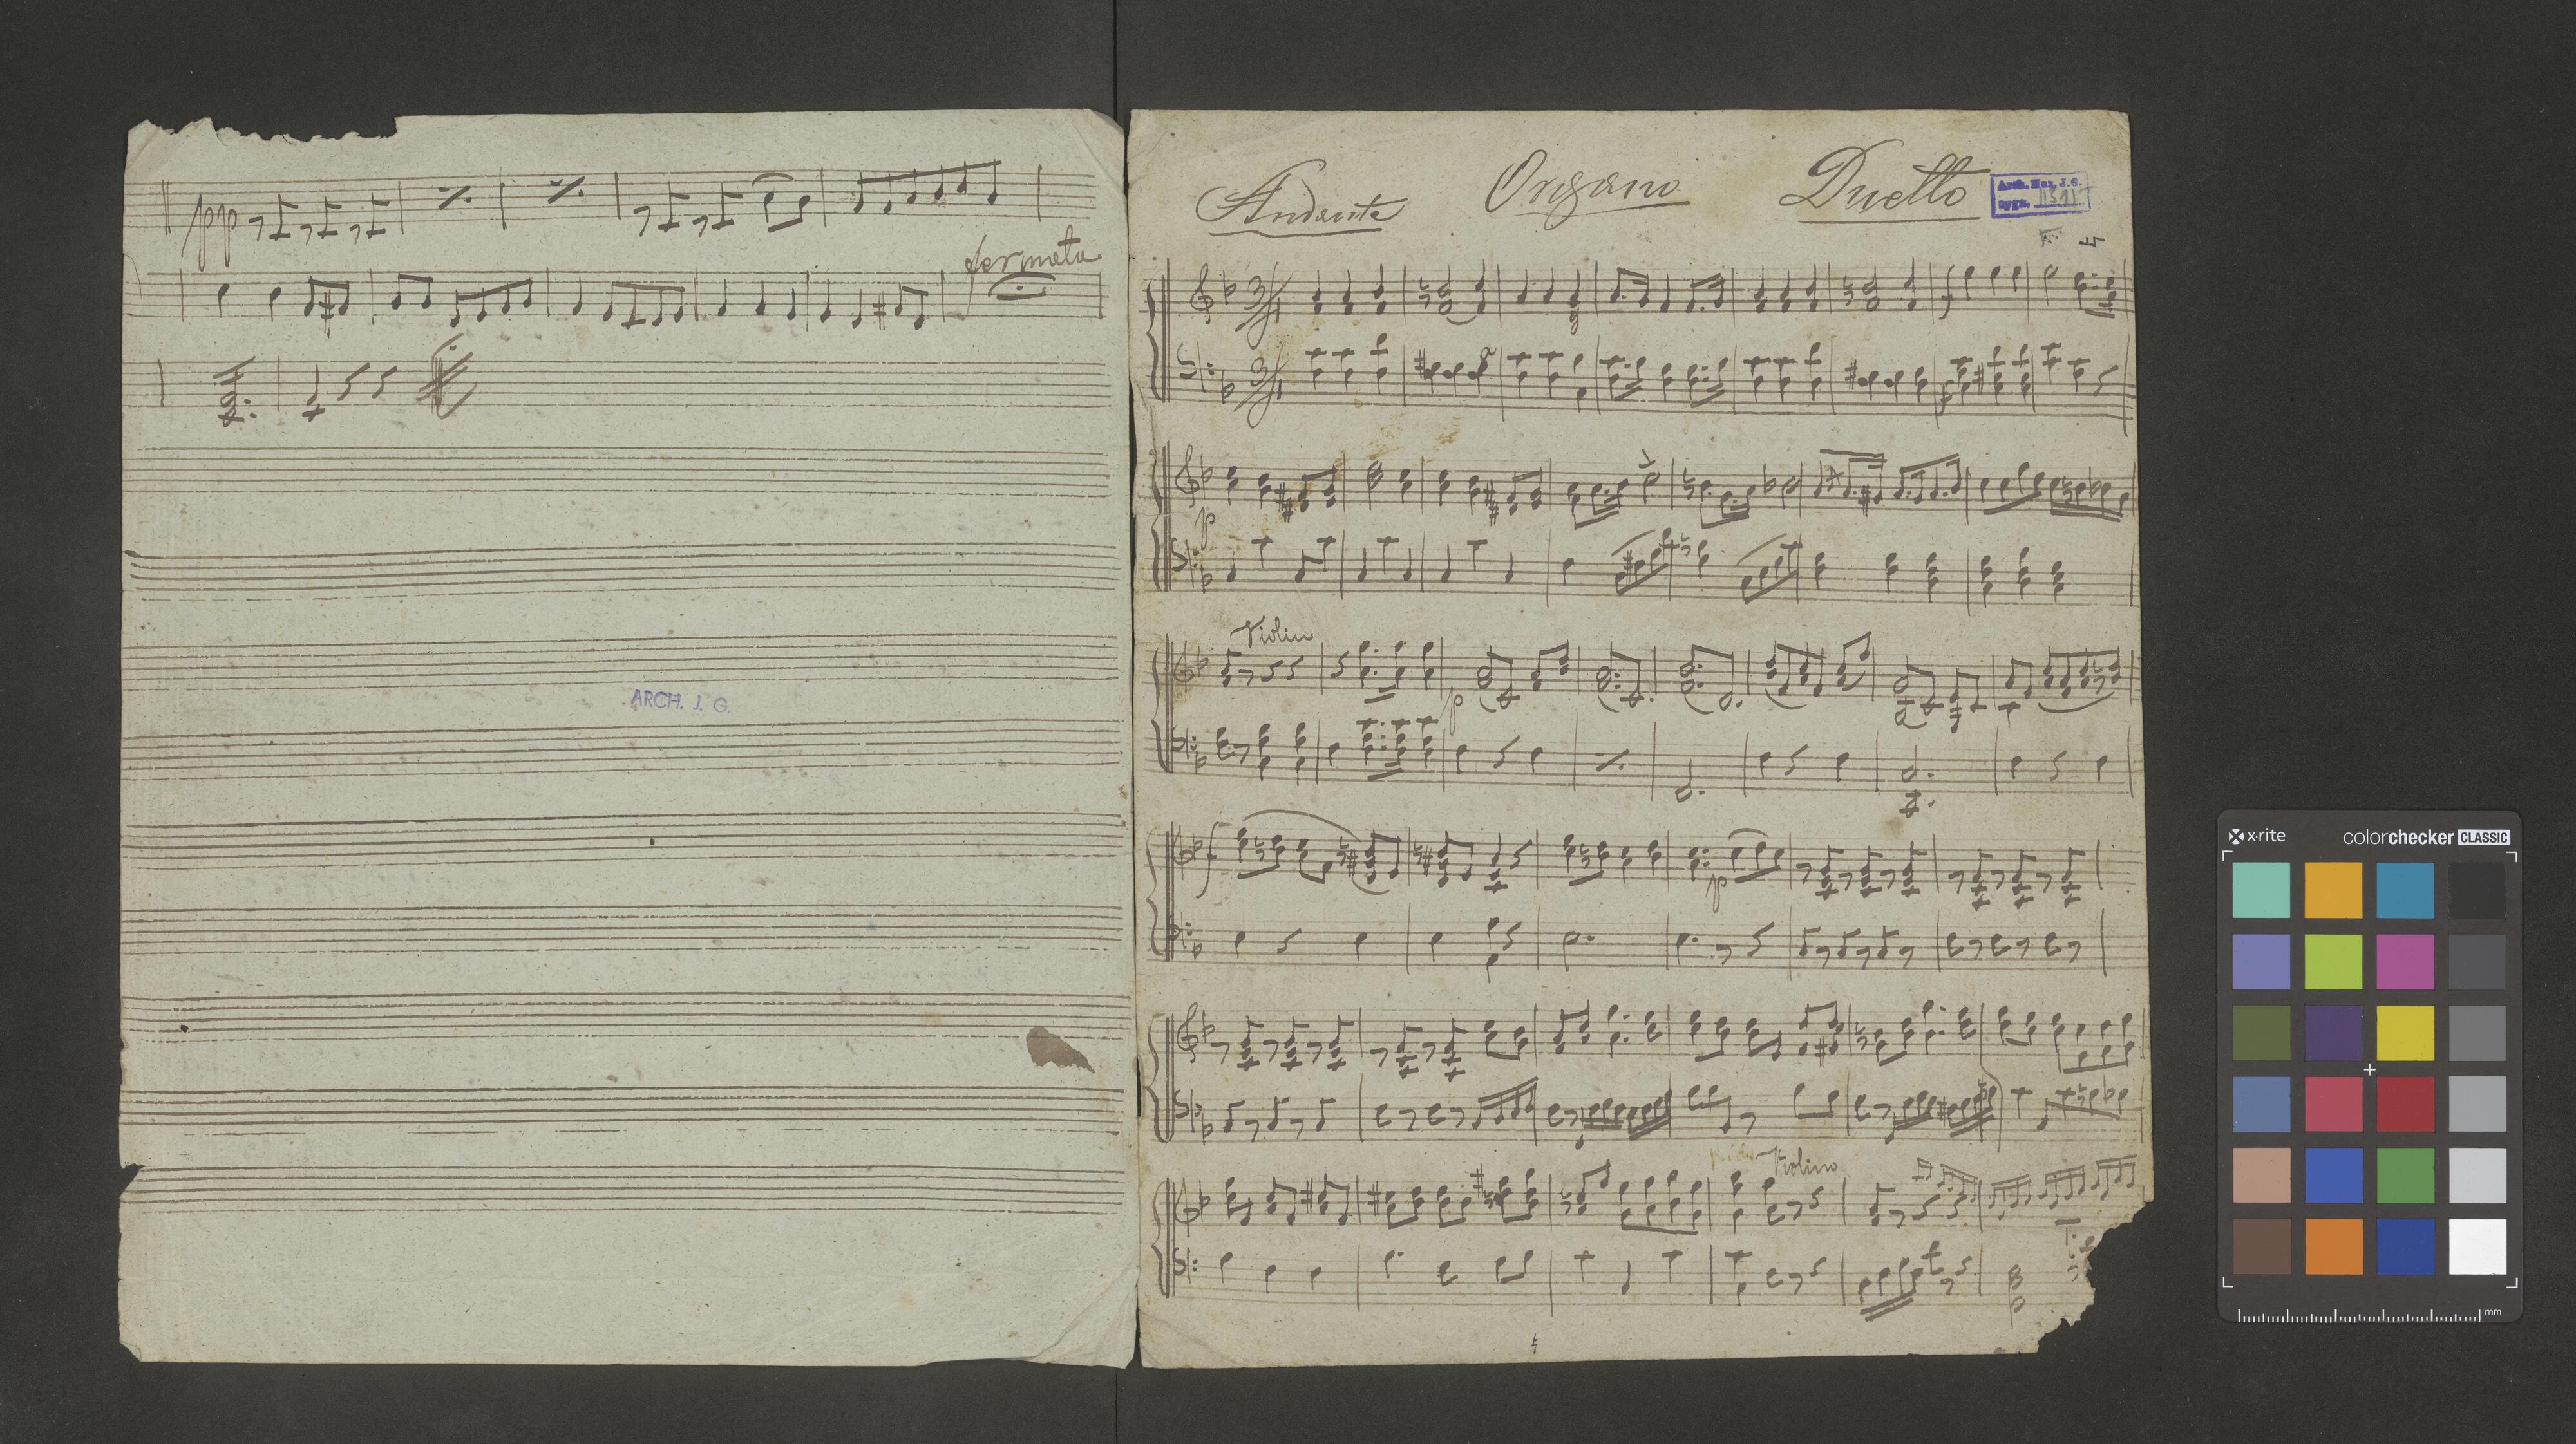 pp
fermata
ARCH. J. G.
Andante Organo Duetto
Arch. Muz. J. G.
sygn.
3/4
f
3/4
f
p
Violin
p
f
p
Violino
x·rite colorchecker CLASSIC
mm